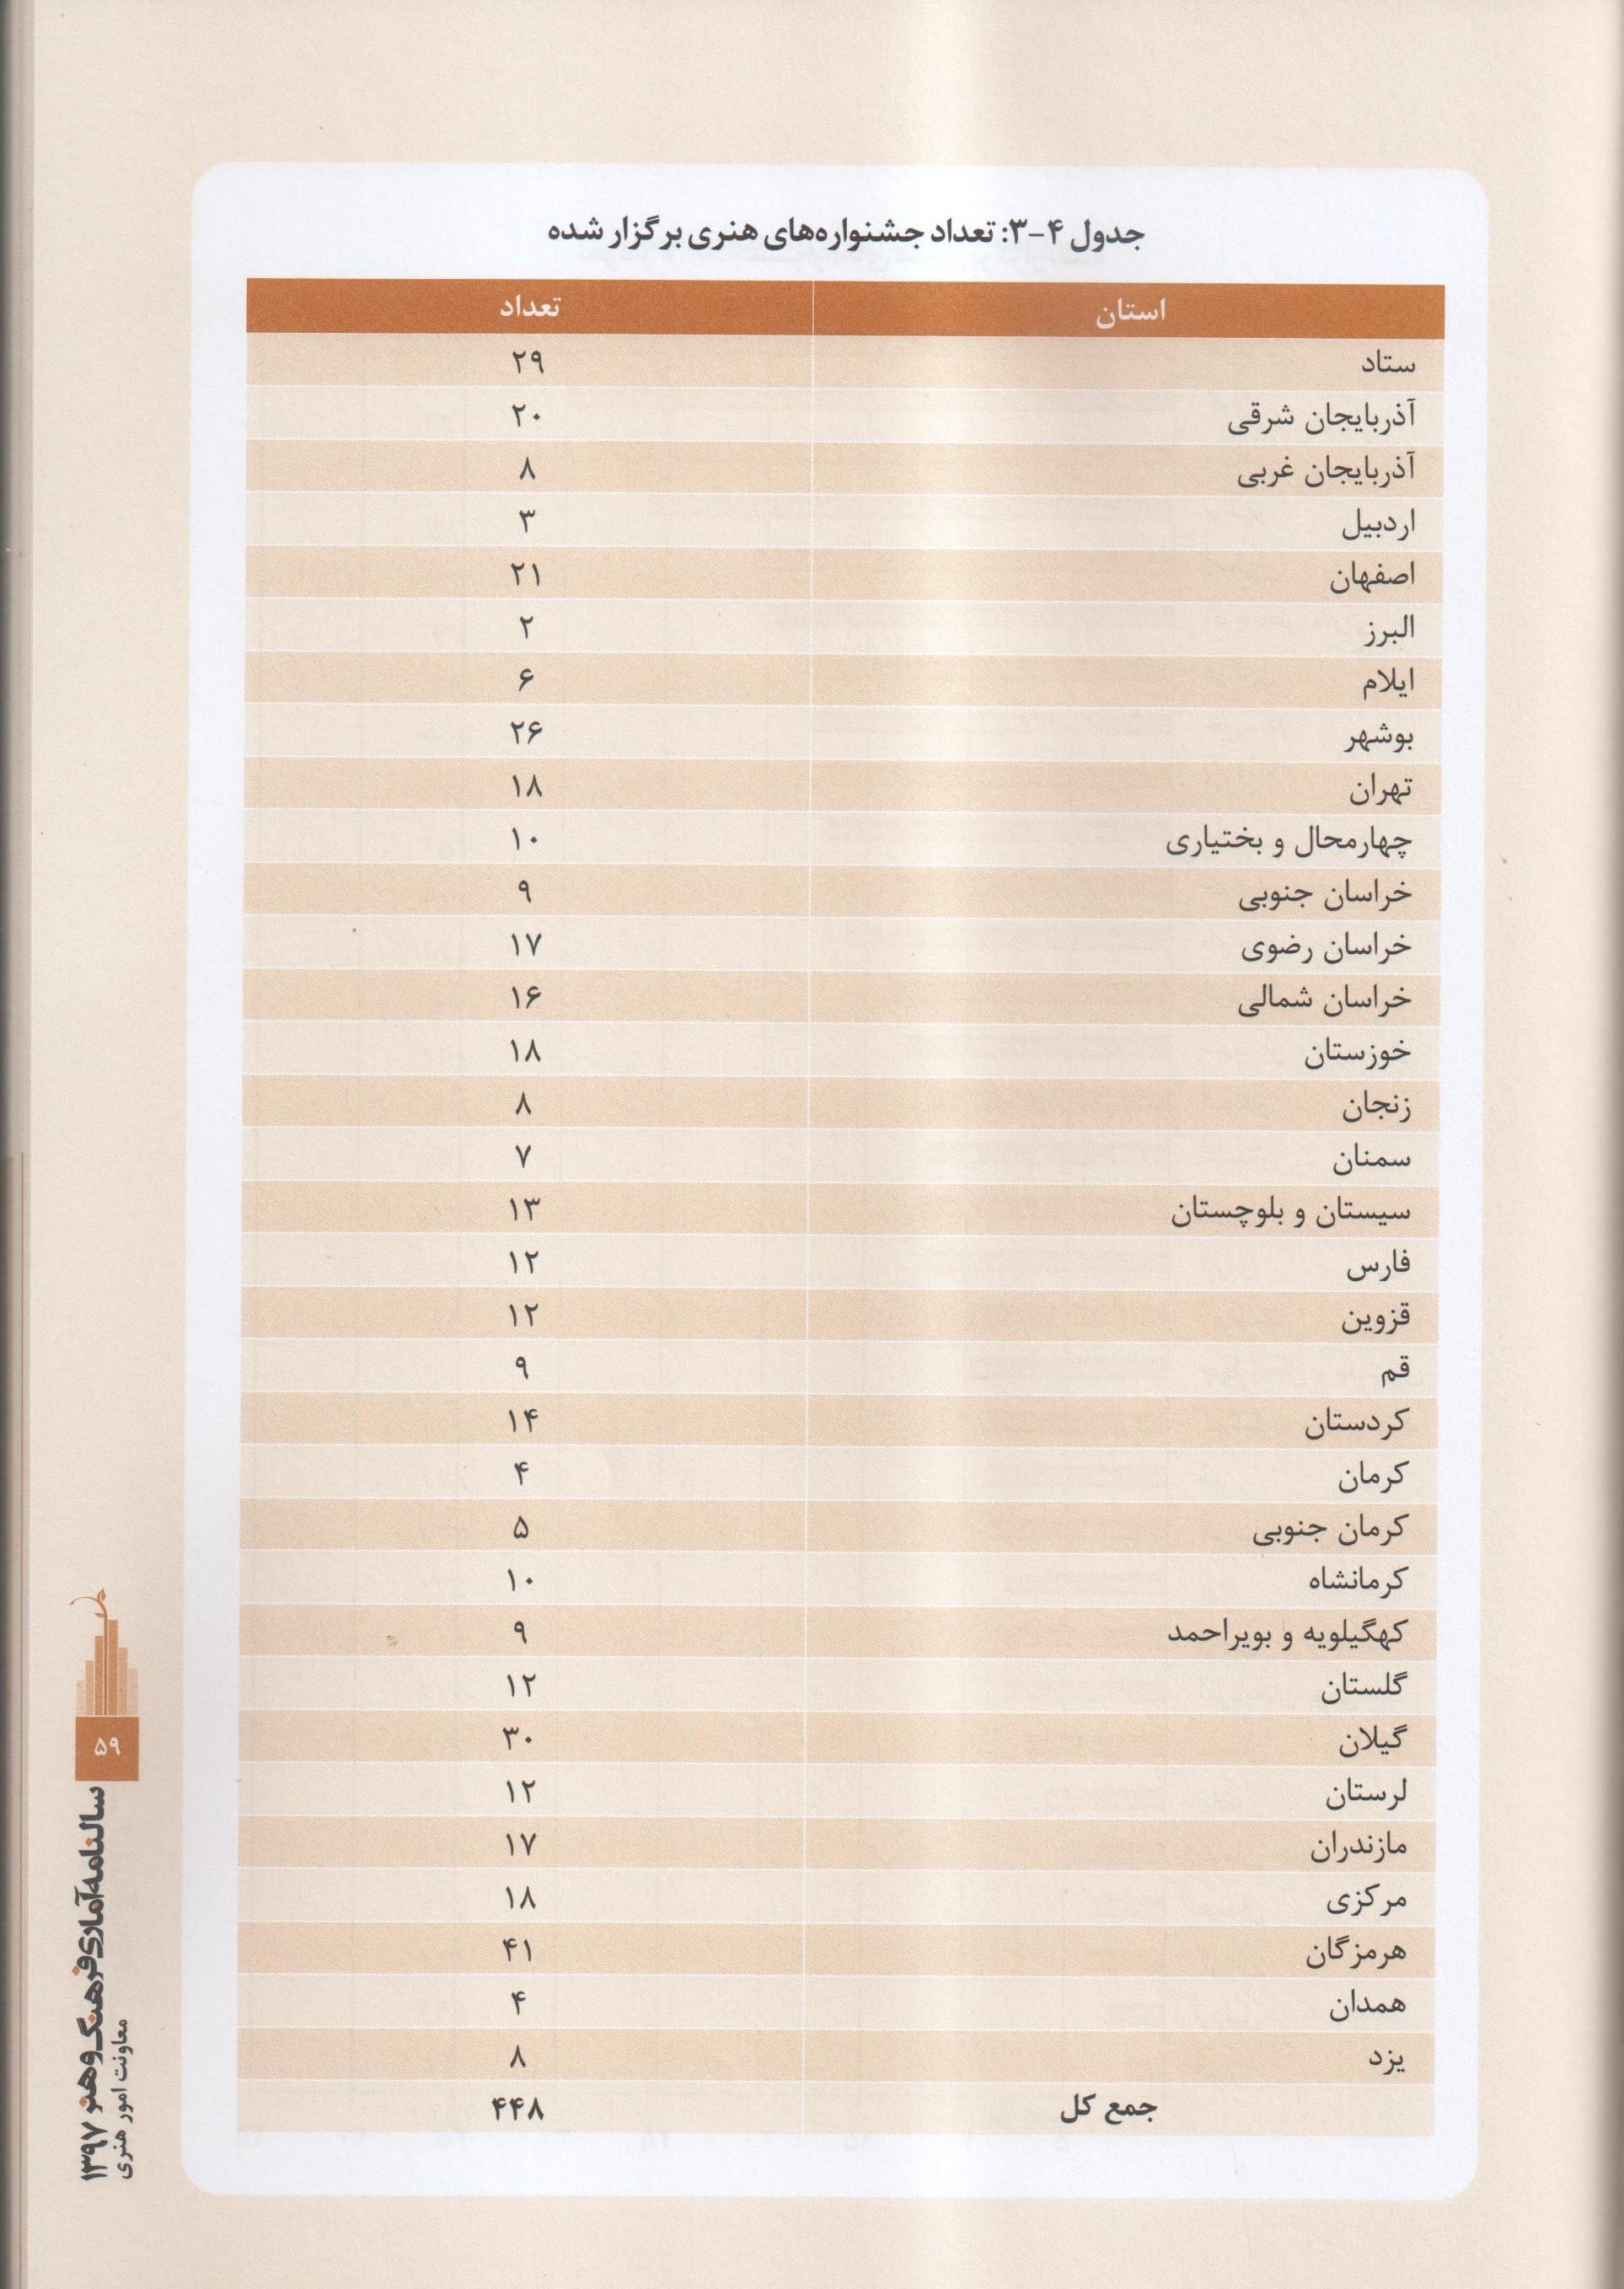 جدول ۴-۳: تعداد جشنواره‌های هنری برگزار شده
استان تعداد
ستاد ۲۹
آذربایجان شرقی ۲۰
آذربایجان غربی ۸
اردبیل ۳
اصفهان ۲۱
البرز ۲
ایلام ۶
بوشهر ۲۶
تهران ۱۸
چهارمحال و بختیاری ۱۰
خراسان جنوبی ۹
خراسان رضوی ۱۷
خراسان شمالی ۱۶
خوزستان ۱۸
زنجان ۸
سمنان ۷
سیستان و بلوچستان ۱۳
فارس ۱۲
قزوین ۱۲
قم ۹
کردستان ۱۴
کرمان ۴
کرمان جنوبی ۵
کرمانشاه ۱۰
کهگیلویه و بویراحمد ۹
گلستان ۱۲
گیلان ۳۰
لرستان ۱۲
مازندران ۱۷
مرکزی ۱۸
هرمزگان ۴۱
همدان ۴
یزد ۸
جمع کل ۴۴۸
۵۹
سالنامه آماری فرهنگ و هنر ۱۳۹۷
معاونت امور هنری